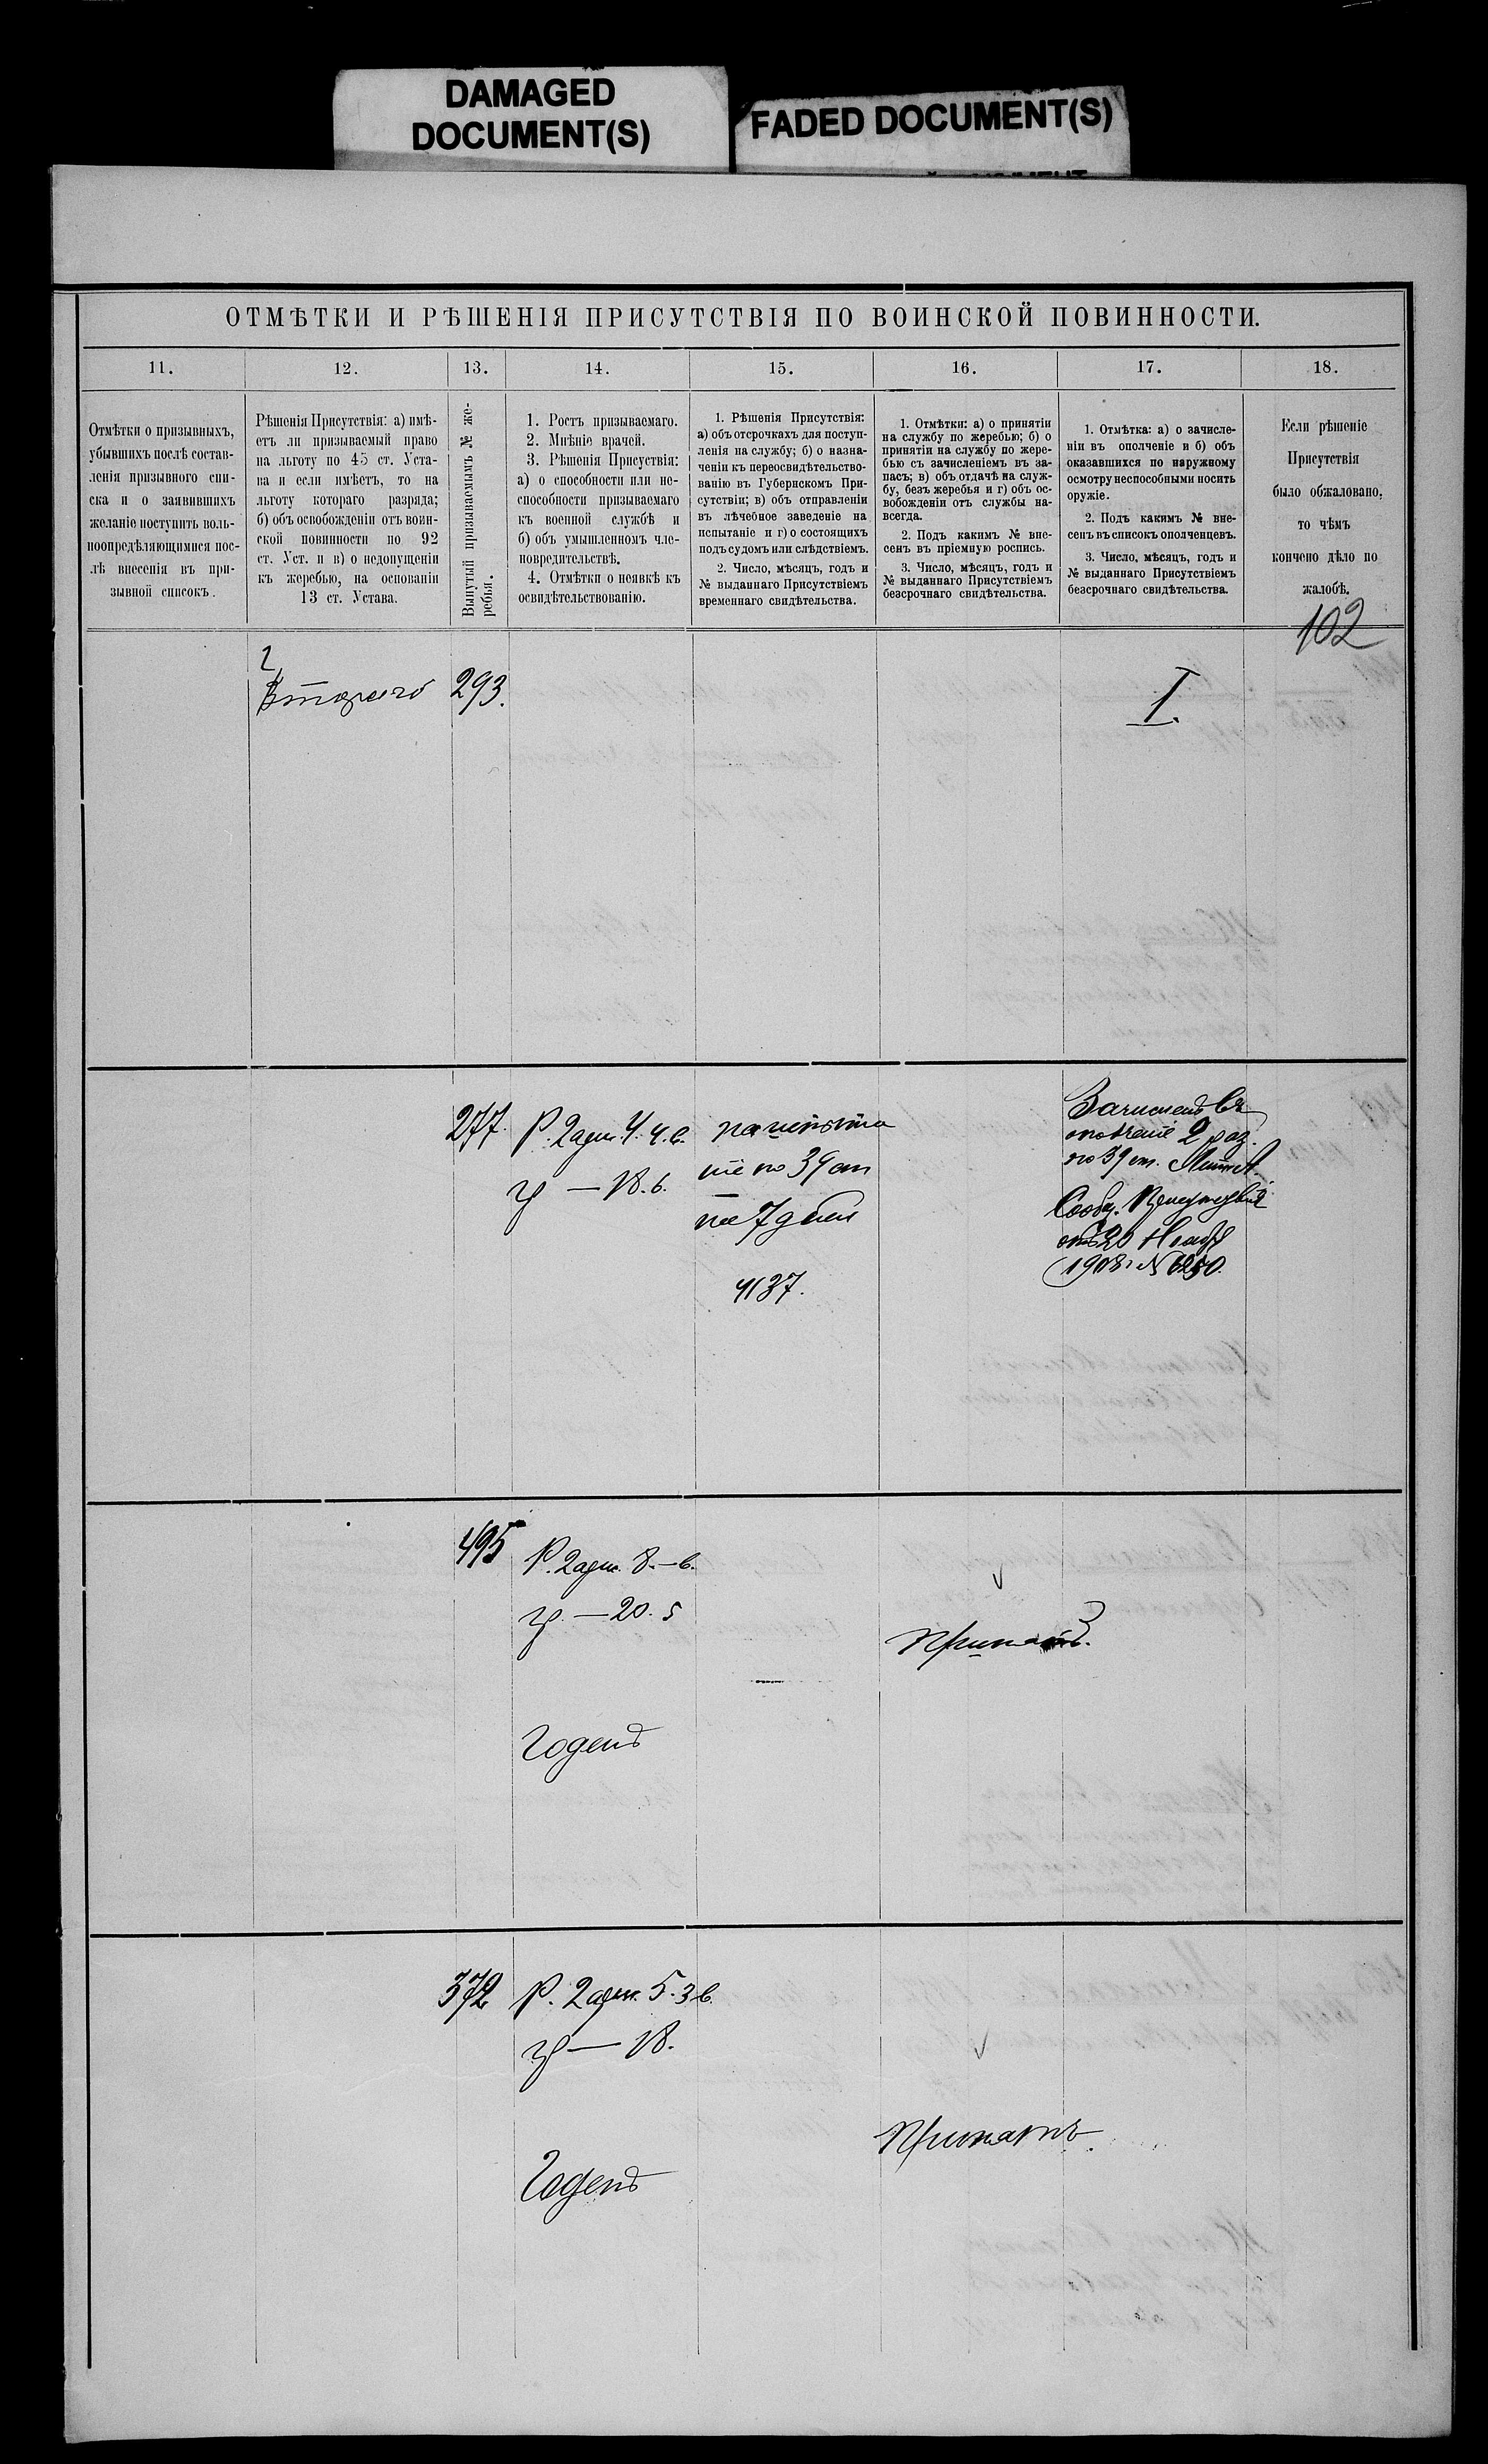 DAMAGED
DOCUMENT(S)
FADED DOCUMENT(S)
ОТМѢТКИ И РѢШЕНІЯ ПРИСУТСТВІЯ ПО ВОИНСКОЙ ПОВИННОСТИ.
11.
Отмѣтки о призывныхъ,
убывшихъ послѣ состав-
ленія призывного спи-
ска и о заявившихъ
желаніе поступить воль-
ноопредѣляющимися пос-
лѣ внесенія въ при-
зывной списокъ.
12.
Рѣшенія Присутствія: а) имѣ-
етъ ли призываемый право
на льготу по 45 ст. Уста-
ва и если имѣетъ, то на
льготу котораго разряда;
б) объ освобожденіи отъ воин-
ской повинности по 92
ст. Уст. и в) о недопущеніи
къ жеребью, на основаніи
13 ст. Устава.
13.
Вынутый призываемымъ № же-
ребья.
14.
1. Ростъ призываемаго.
2. Мнѣніе врачей.
3. Рѣшенія Присуствія:
а) о способности или не-
способности призываемаго
къ военной службѣ и
б) объ умышленномъ чле-
новредительствѣ.
4. Отмѣтки о неявкѣ къ
освидѣтельствованію.
15.
1. Рѣшенія Присутствія:
а) объ отсрочкахъ для поступ-
ленія на службу; б) о назна-
ченіи къ переосвидѣтельство-
ванію въ Губернскомъ При-
сутствіи; в) объ отправленіи
въ лѣчебное заведеніе на
испытаніе и г) о состоящихъ
подъ судомъ или слѣдствіемъ.
2. Число, мѣсяцъ, годъ и
№ выданнаго Присутствіемъ
временнаго свидѣтельства.
16.
1. Отмѣтки: а) о принятіи
на службу по жеребью; б) о
принятіи на службу по жере-
бью съ зачисленіемъ въ за-
пасъ; в) объ отдачѣ на служ-
бу, безъ жеребья и г) объ ос-
вобожденіи отъ службы на-
всегда.
2. Подъ какимъ № вне-
сенъ въ пріемную роспись.
3. Число, мѣсяцъ, годъ и
№ выданнаго Присутствіемъ
безсрочнаго свидѣтельства.
17.
1. Отмѣтка: а) о зачисле-
ніи въ ополченіе и б) объ
оказавшихся по наружному
осмотру неспособными носить
оружіе.
2. Подъ какимъ № вне-
сенъ въ списокъ ополченцевъ.
3. Число, мѣсяцъ, годъ и
№ выданнаго Присутствіемъ
безсрочнаго свидѣтельства.
18.
Если рѣшеніе
Присутствія
было обжаловано,
то чѣмъ
кончено дѣло по
жалобѣ.
102
Второго
293.
I.
277.
Р. 2 арш. 4. 4. в.
гр — 18. в.
на испыта
ніе по 39 ст
на 7 дней
4137.
Зачисленъ въ
ополченіе 2 раз.
по 39 ст. Лит. А.
Сообщ. Присутствія
отъ 20 Ноября
1908 г № 6250.
495
Р. 2 арш. 8. — в.
гр. — 20. 5
Годенъ
Принятъ.
372
Р. 2 арш. 5. 3 в.
гр — 18.
Годенъ
Принятъ.